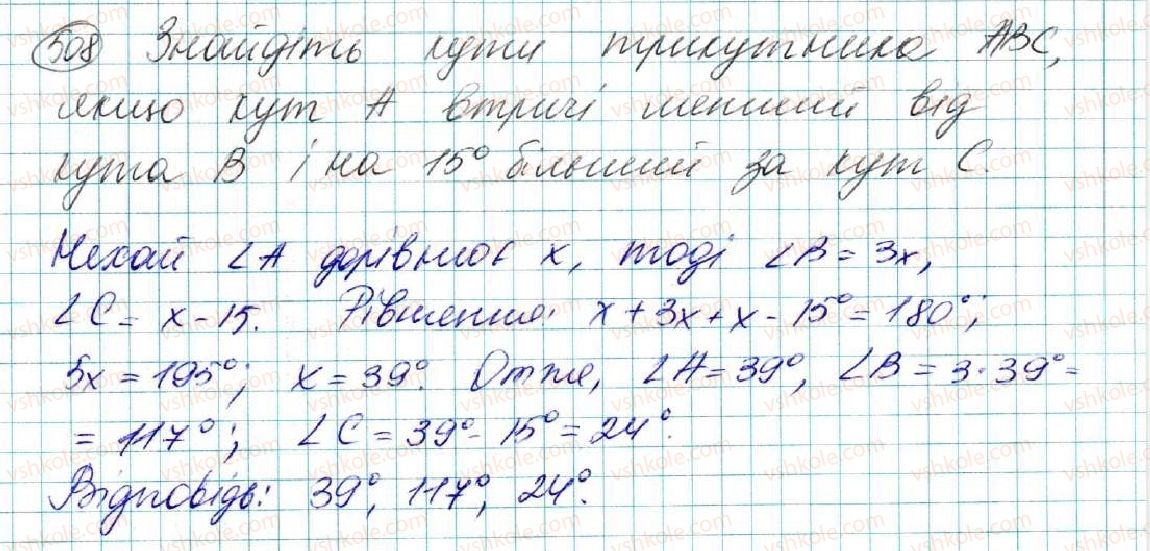 508 Знайдіть кути трикутника ABC,
якщо кут A втричі менший від
кута B і на 15° більший за кут C.
Нехай ∠A дорівнює x, тоді ∠B = 3x,
∠C = x - 15. Рівняння: x + 3x + x - 15° = 180°;
5x = 195°; x = 39°. Отже, ∠A = 39°, ∠B = 3·39° =
= 117°; ∠C = 39° - 15° = 24°.
Відповідь: 39°, 117°, 24°.